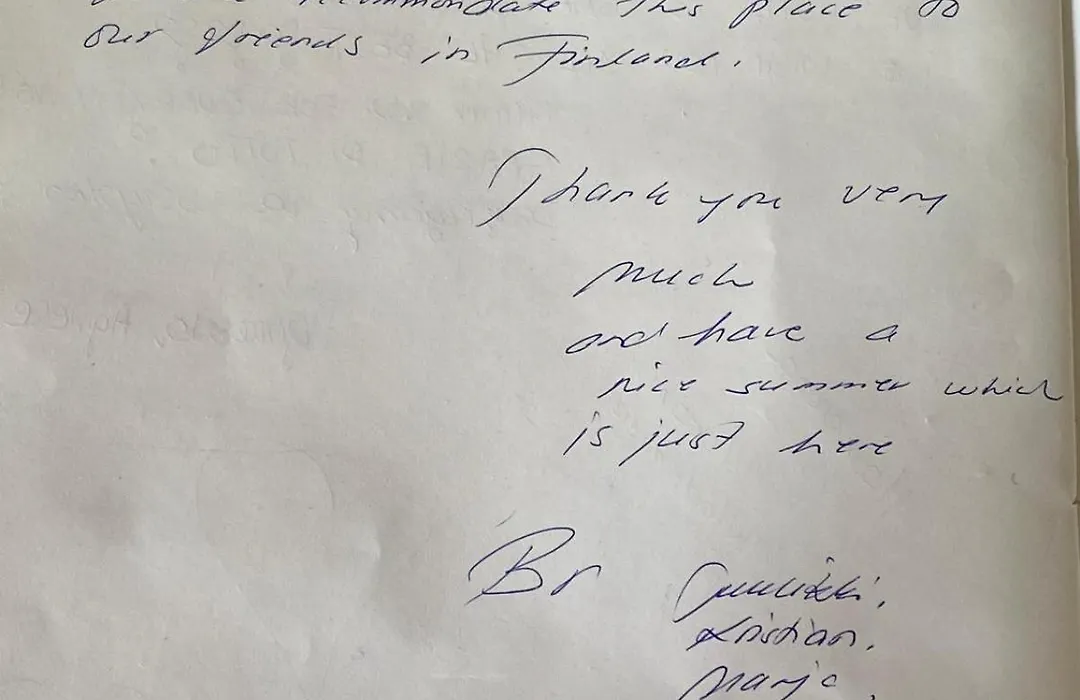 recommondate this place to
our friends in Finland.
Thank you very
much
and have a
nice summer which
is just here
Br
Kristian,
Marja